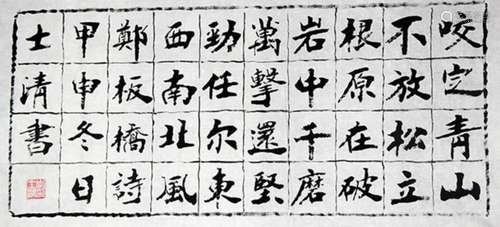 咬定青山
不放松立
根原在破
岩中千磨
萬擊還堅
勁任尔東
西南北風
鄭板橋詩
甲申冬日
士清書